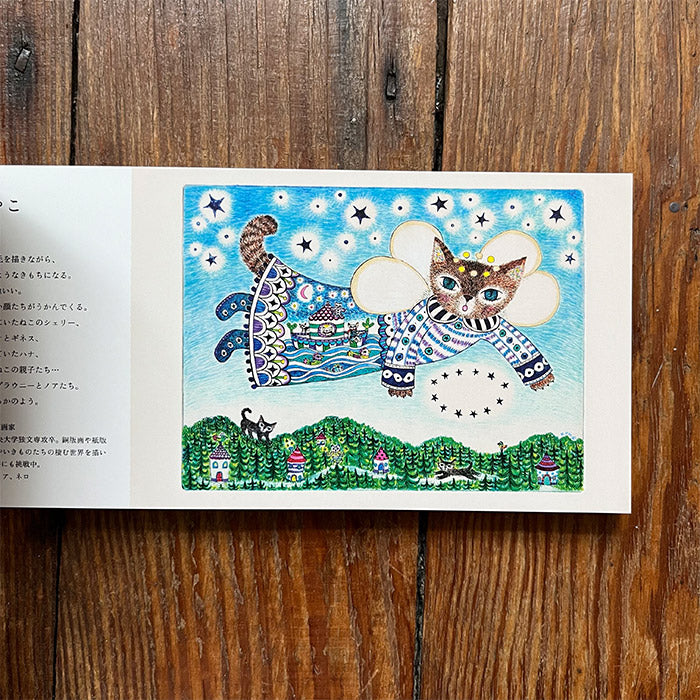 こ
毛を描きながら、
ようなきもちになる。
いい。
い顔たちがうかんでくる。
ていたねこのシェリー、
ーとギネス、
ていたハナ、
ねこの親子たち…
ブラウニーとノアたち。
るかのよう。
画家
央大学独文専攻卒。銅版画や紙版
いきものたちの棲む世界を描い
にも挑戦中。
ア、ネロ